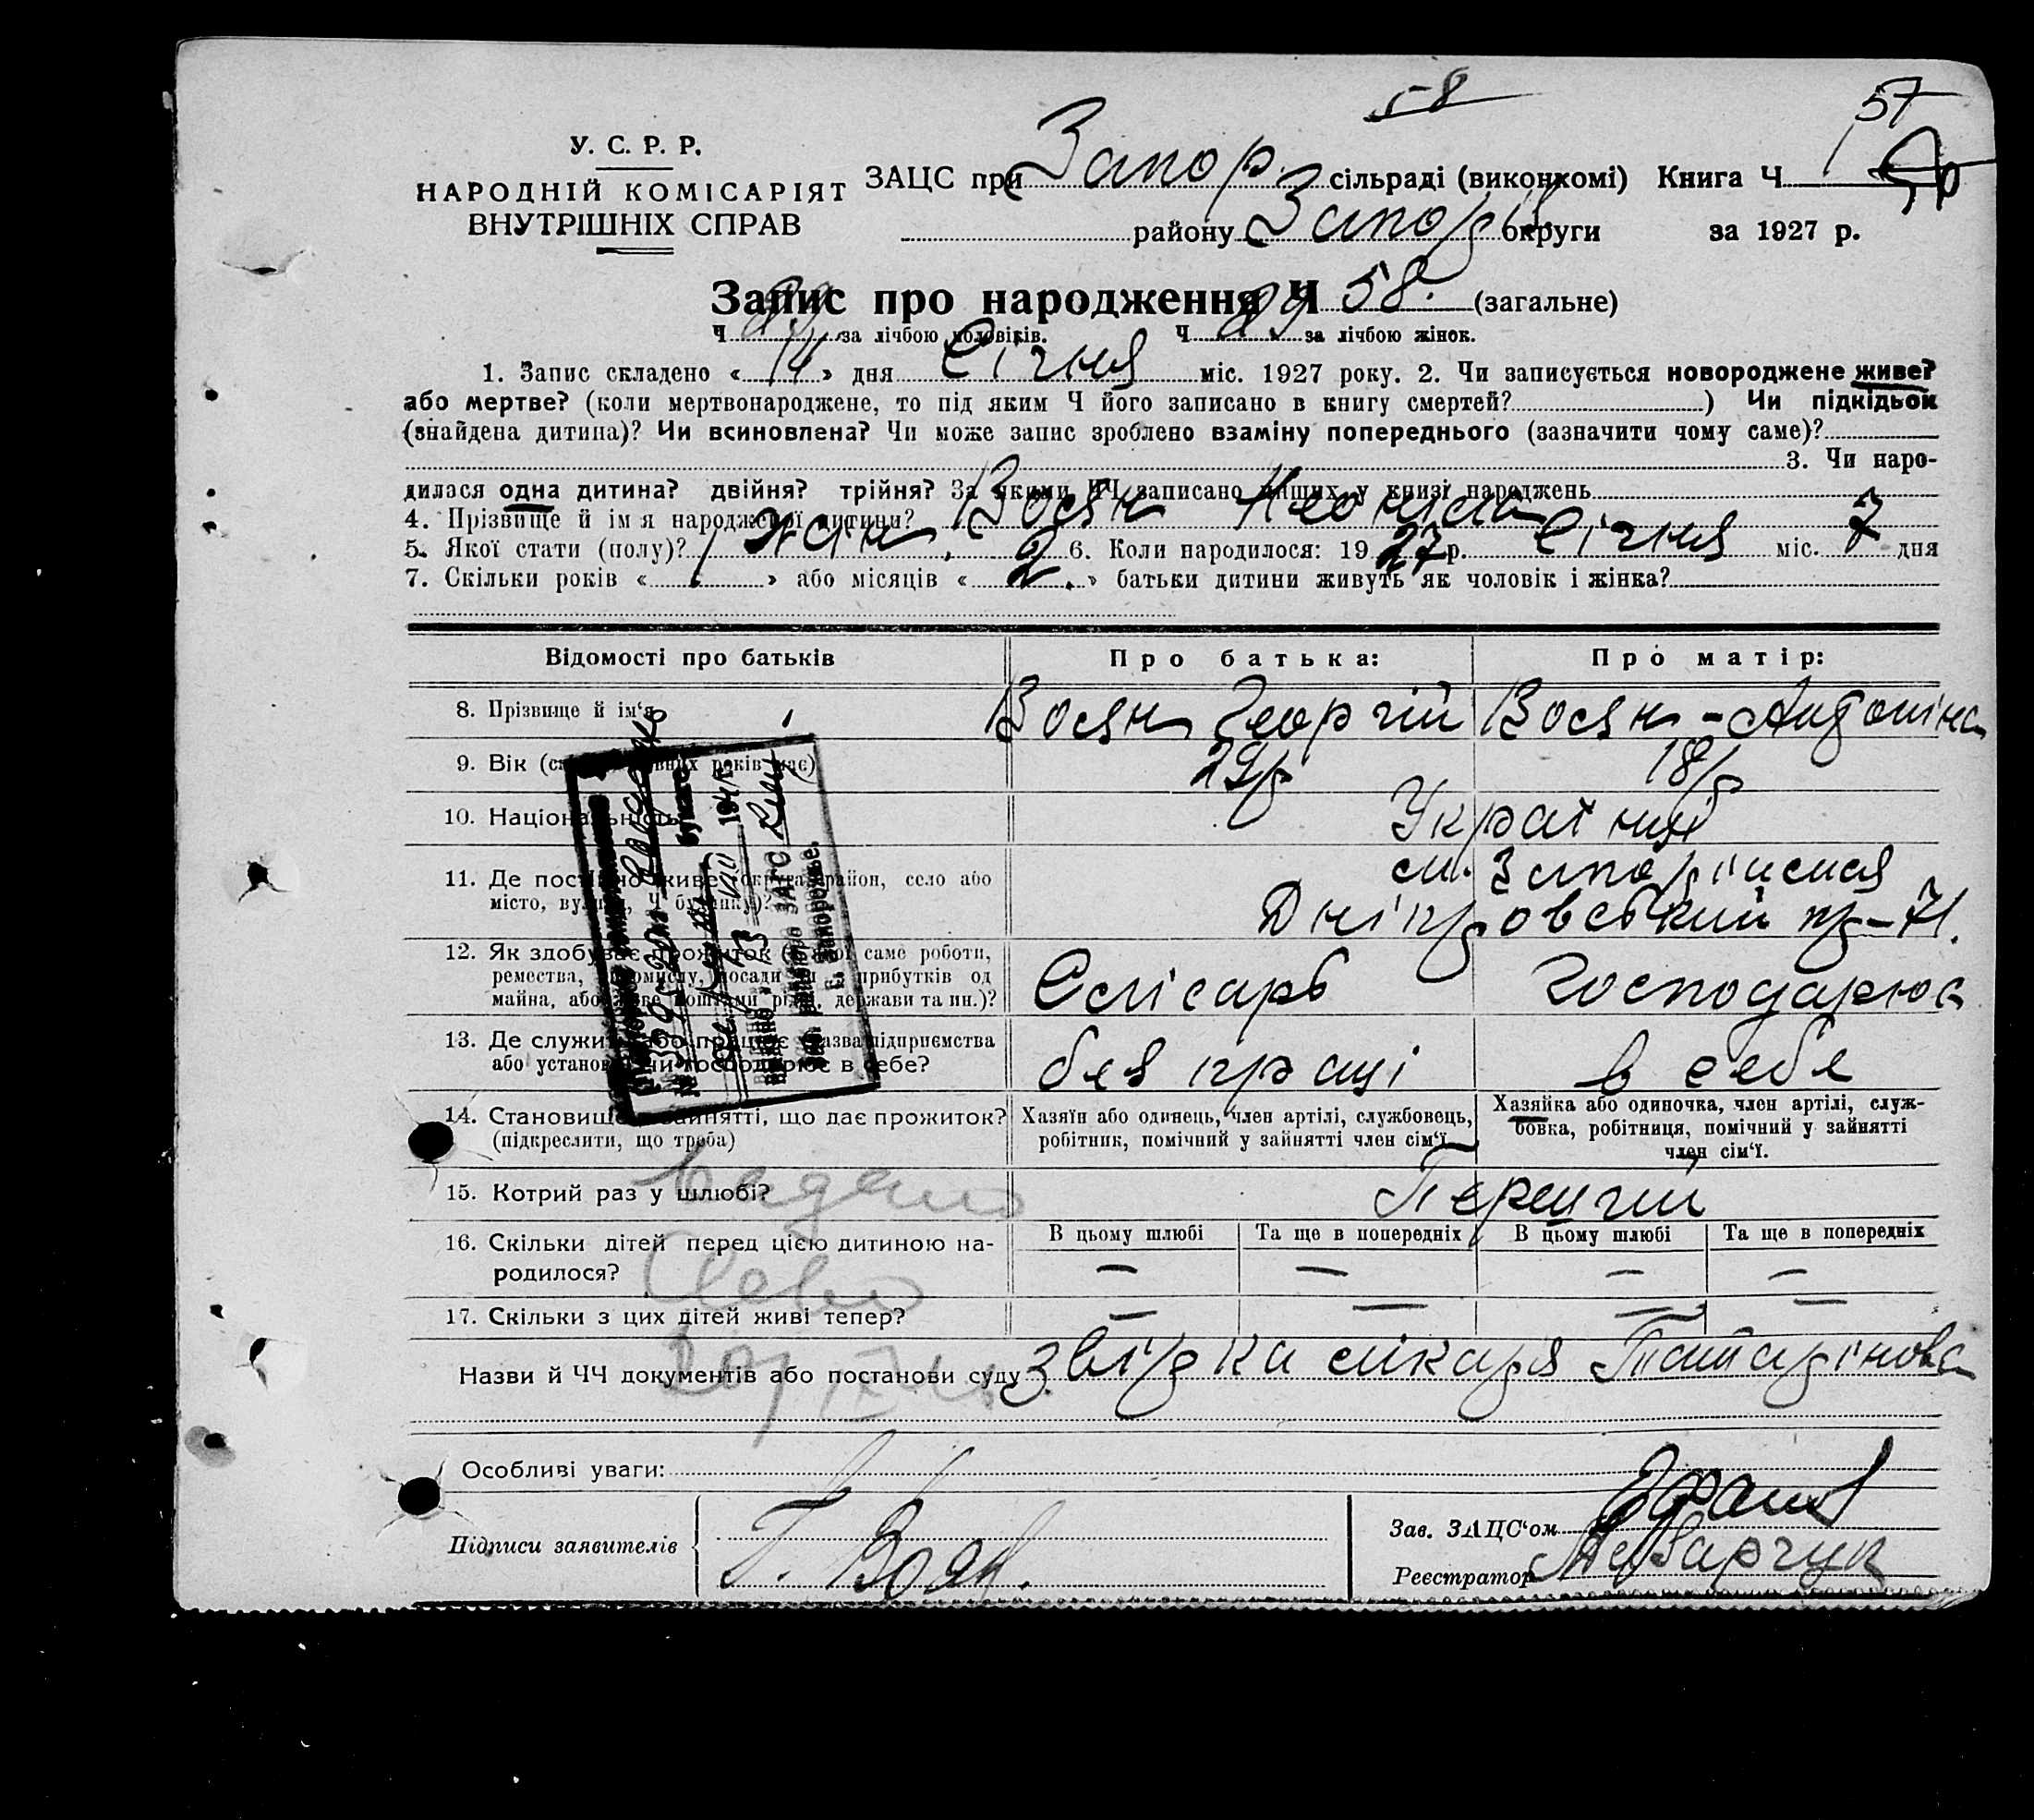 58
57
У. С. Р. Р.
НАРОДНІЙ КОМІСАРІЯТ
ВНУТРІШНІХ СПРАВ
ЗАЦС при Запор. сільраді (виконкомі) Книга Ч. 1
району Запоріз округи за 1927 р.
Запис про народження Ч 58. (загальне)
Ч за лічбою чоловіків. Ч 29 за лічбою жінок.
1. Запис складено « 14 » дня Січня міс. 1927 року. 2. Чи записується новороджене живе?
або мертве? (коли мертвонароджене, то під яким Ч його записано в книгу смертей? ) Чи підкідьок
(знайдена дитина)? Чи всиновлена? Чи може запис зроблено взаміну попереднього (зазначити чому саме)?
3. Чи наро-
дилася одна дитина? двійня? трійня? За якими ЧЧ записано инших у книзі народжень
4. Прізвище й ім'я народженої дитини? Воян
5. Якої стати (полу)? жін. 2 6. Коли народилося: 1927 р. Січня міс. 7 дня
7. Скільки років « » або місяців « 2. » батьки дитини живуть як чоловік і жінка?
Відомості про батьків Про батька: Про матір:
8. Прізвище й ім'я Воян Георгій Воян - Андоніна
9. Вік (скільки повних років має) 29р 18р
10. Національність Українці
11. Де постійно живе (округа, район, село або
місто, вулиця, Ч будинку)? м. Запоріжжя
Дніпровський пр-71.
12. Як здобуває прожиток (з якої саме роботи,
ремества, промислу, посади чи з прибутків од
майна, або живе коштами рідні, держави та ин.)? Слюсарь Господарює
13. Де служить або працює (назва підприємства
або установи) чи господарює в себе? без праці в себе
14. Становище в зайнятті, що дає прожиток?
(підкреслити, що треба)
Хазяїн або одинець, член артілі, службовець,
робітник, помічний у зайнятті член сім'ї
Хазяйка або одиночка, член артілі, служ-
бовка, робітниця, помічний у зайнятті
член сім'ї.
15. Котрий раз у шлюбі? Перший
16. Скільки дітей перед цією дитиною на-
родилося?
В цьому шлюбі Та ще в попередніх В цьому шлюбі Та ще в попередніх
— — — —
17. Скільки з цих дітей живі тепер? — — — —
Назви й ЧЧ документів або постанови суду Звідка лікаря Татарінова
Особливі уваги:
Підписи заявителів Г. Воян.
Зав. ЗАЦС'ом
Реєстратор
194
ЗАГС
г. Запорожье.